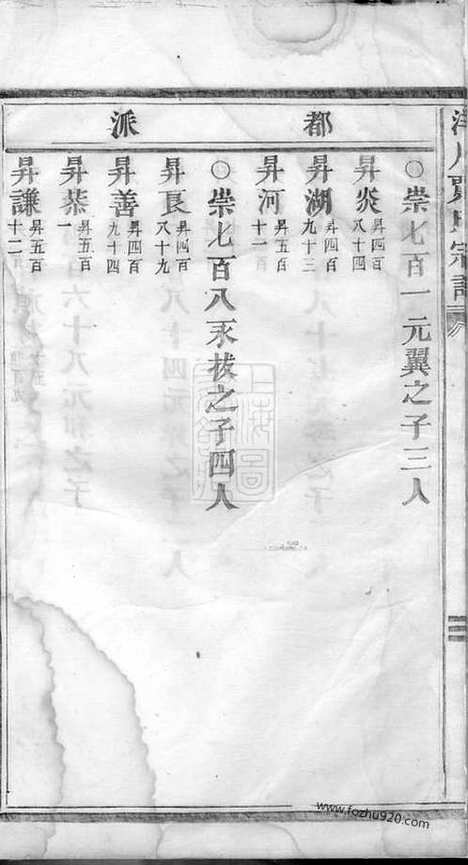 都派
○崇七百一元翼之子三人
昇炎昇四百八十四
昇湖昇四百九十三
昇河昇五百十一
○崇七百八永拔之子四人
昇良昇四百八十九
昇善昇四百九十四
昇恭昇五百一
昇謙昇五百十二
www.fozhu920.com